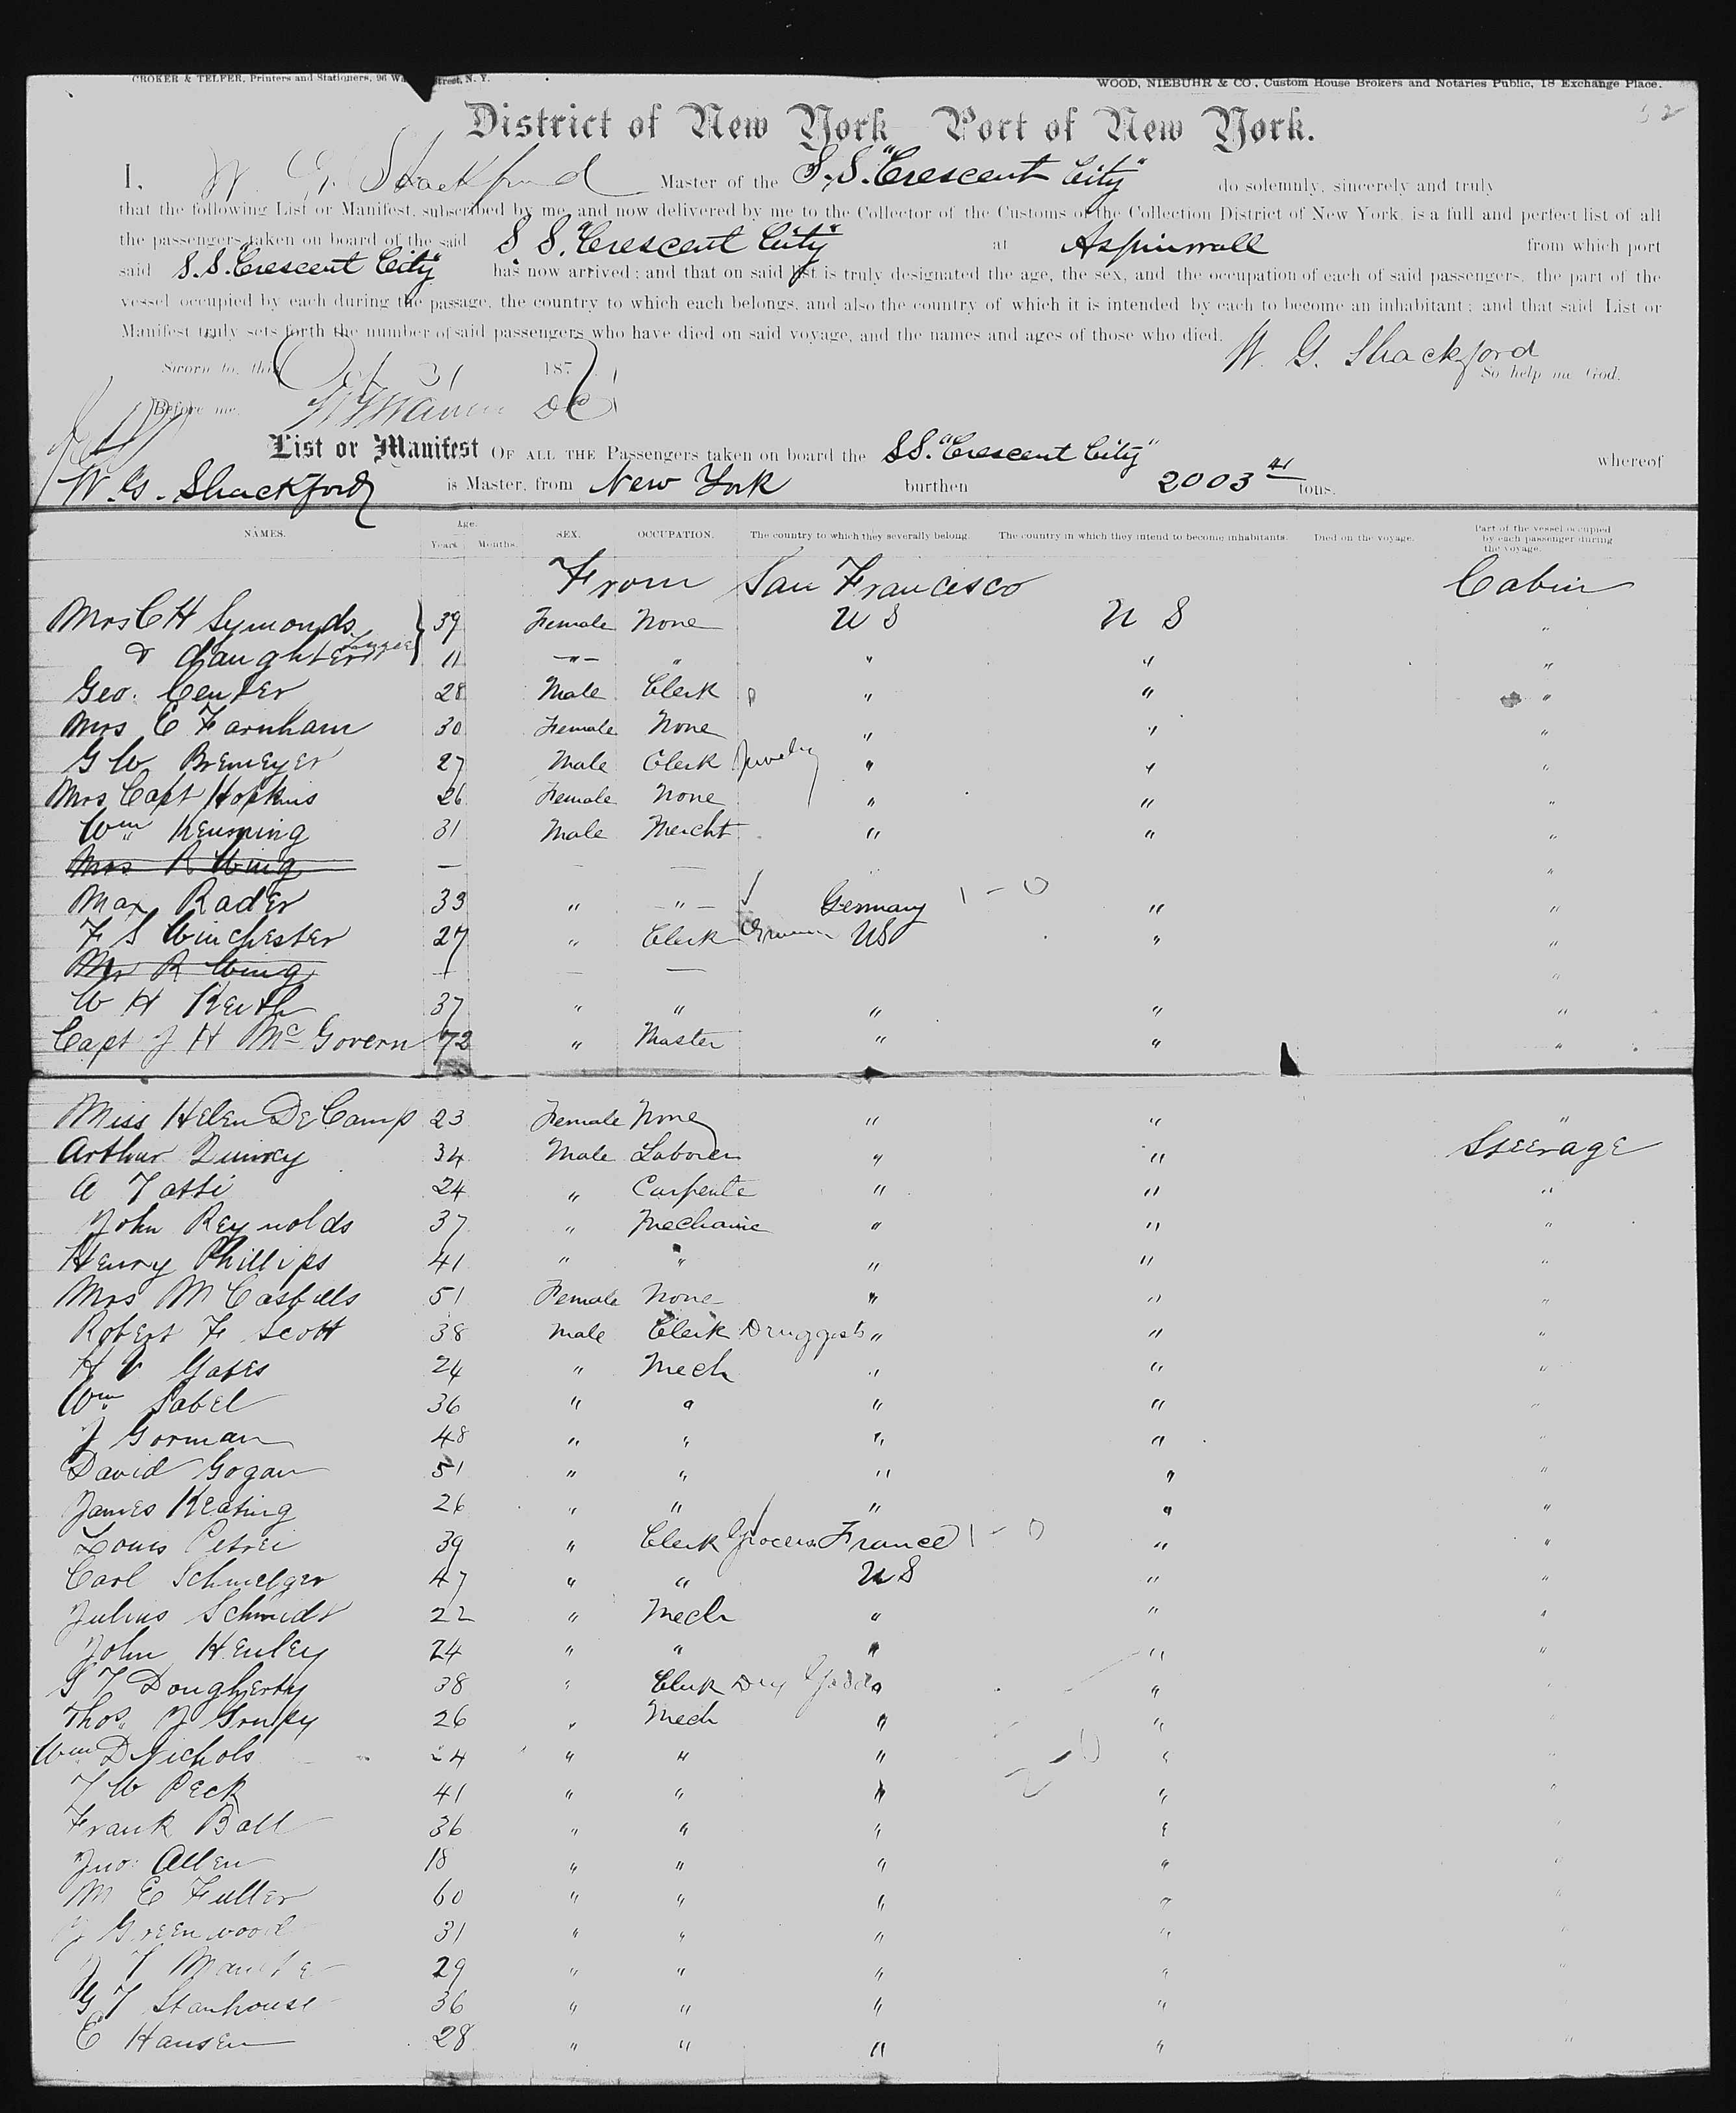 CROKER & TELFER, Printers and Stationers, 96 Street, N. Y.
WOOD, NIEBUHR & CO., Custom House Brokers and Notaries Public, 18 Exchange Place.
District of New York Port of New York.
I, W. G. Shackford Master of the S.S. "Crescent City" do solemnly, sincerely and truly
that the following List or Manifest, subscribed by me, and now delivered by me to the Collector of the Customs of the Collection District of New York, is a full and perfect list of all
the passengers taken on board of the said S S. "Crescent City" at Aspinwall from which port
said S.S. "Crescent City" has now arrived; and that on said list is truly designated the age, the sex, and the occupation of each of said passengers, the part of the
vessel occupied by each during the passage, the country to which each belongs, and also the country of which it is intended by each to become an inhabitant; and that said List or
Manifest truly sets forth the number of said passengers who have died on said voyage, and the names and ages of those who died.
W. G. Shackford
Sworn to, this Oct 31 187 So help me God.
Before me,
List or Manifest OF ALL THE Passengers taken on board the SS. "Crescent City" whereof
W. G. Shackford is Master, from New York burthen 2003 41 tons.
NAMES. Age. Years. Months. SEX. OCCUPATION. The country to which they severally belong. The country in which they intend to become inhabitants. Died on the voyage. Part of the vessel occupied by each passenger during the voyage.
From San Francisco Cabin
Mrs C H Symonds 39 Female None U S U S "
& daughter 11 -"- " " " "
Geo. Center 28 Male Clerk " " "
Mrs C Farnham 30 Female None " " "
G W Bremeyer 27 Male Clerk Jewelry " " "
Mrs Capt Hopkins 26 Female None " " "
Wm Kenning 31 Male Mercht " " "
Mrs R Wing — — — "
Max Rader 33 " -"- Germany 1 - 0 " "
F S Winchester 27 " Clerk US " "
Mr R Wing — — — "
W H Keith 37 " " " " "
Capt J H McGovern 72 " Master " " "
Miss Helen DeCamp 23 Female None " " "
Arthur 34 Male Laborer " " Steerage
A Tassi 24 " Carpenter " " "
John Reynolds 37 " Mechanic " " "
Henry Phillips 41 " " " " "
Mrs M 51 Female None " " "
Robert F Scott 38 Male Clerk Druggist " " "
H V Yates 24 " Mech " " "
Wm Sabel 36 " " " " "
J Gorman 48 " " " " "
David Gogan 51 " " " " "
James Keating 26 " " " " "
Louis Petrei 39 " Clerk Grocers France 1 - 0 " "
Carl Schmelzer 47 " " U S " "
Julius Schmidt 22 " Mech " " "
John Henley 24 " " " " "
S T Dougherty 38 " Clerk Dry Goods " "
Thos J 26 " Mech " "
Wm D Nichols 24 " " " "
J W Peck 41 " " " " "
Frank Ball 36 " " " "
Jno. Allen 18 " " " " "
M E Fuller 60 " " " " "
J Greenwood 31 " " " " "
J T 29 " " " " "
G T Stanhouse 36 " " " " "
C Hansen 28 " " " " "